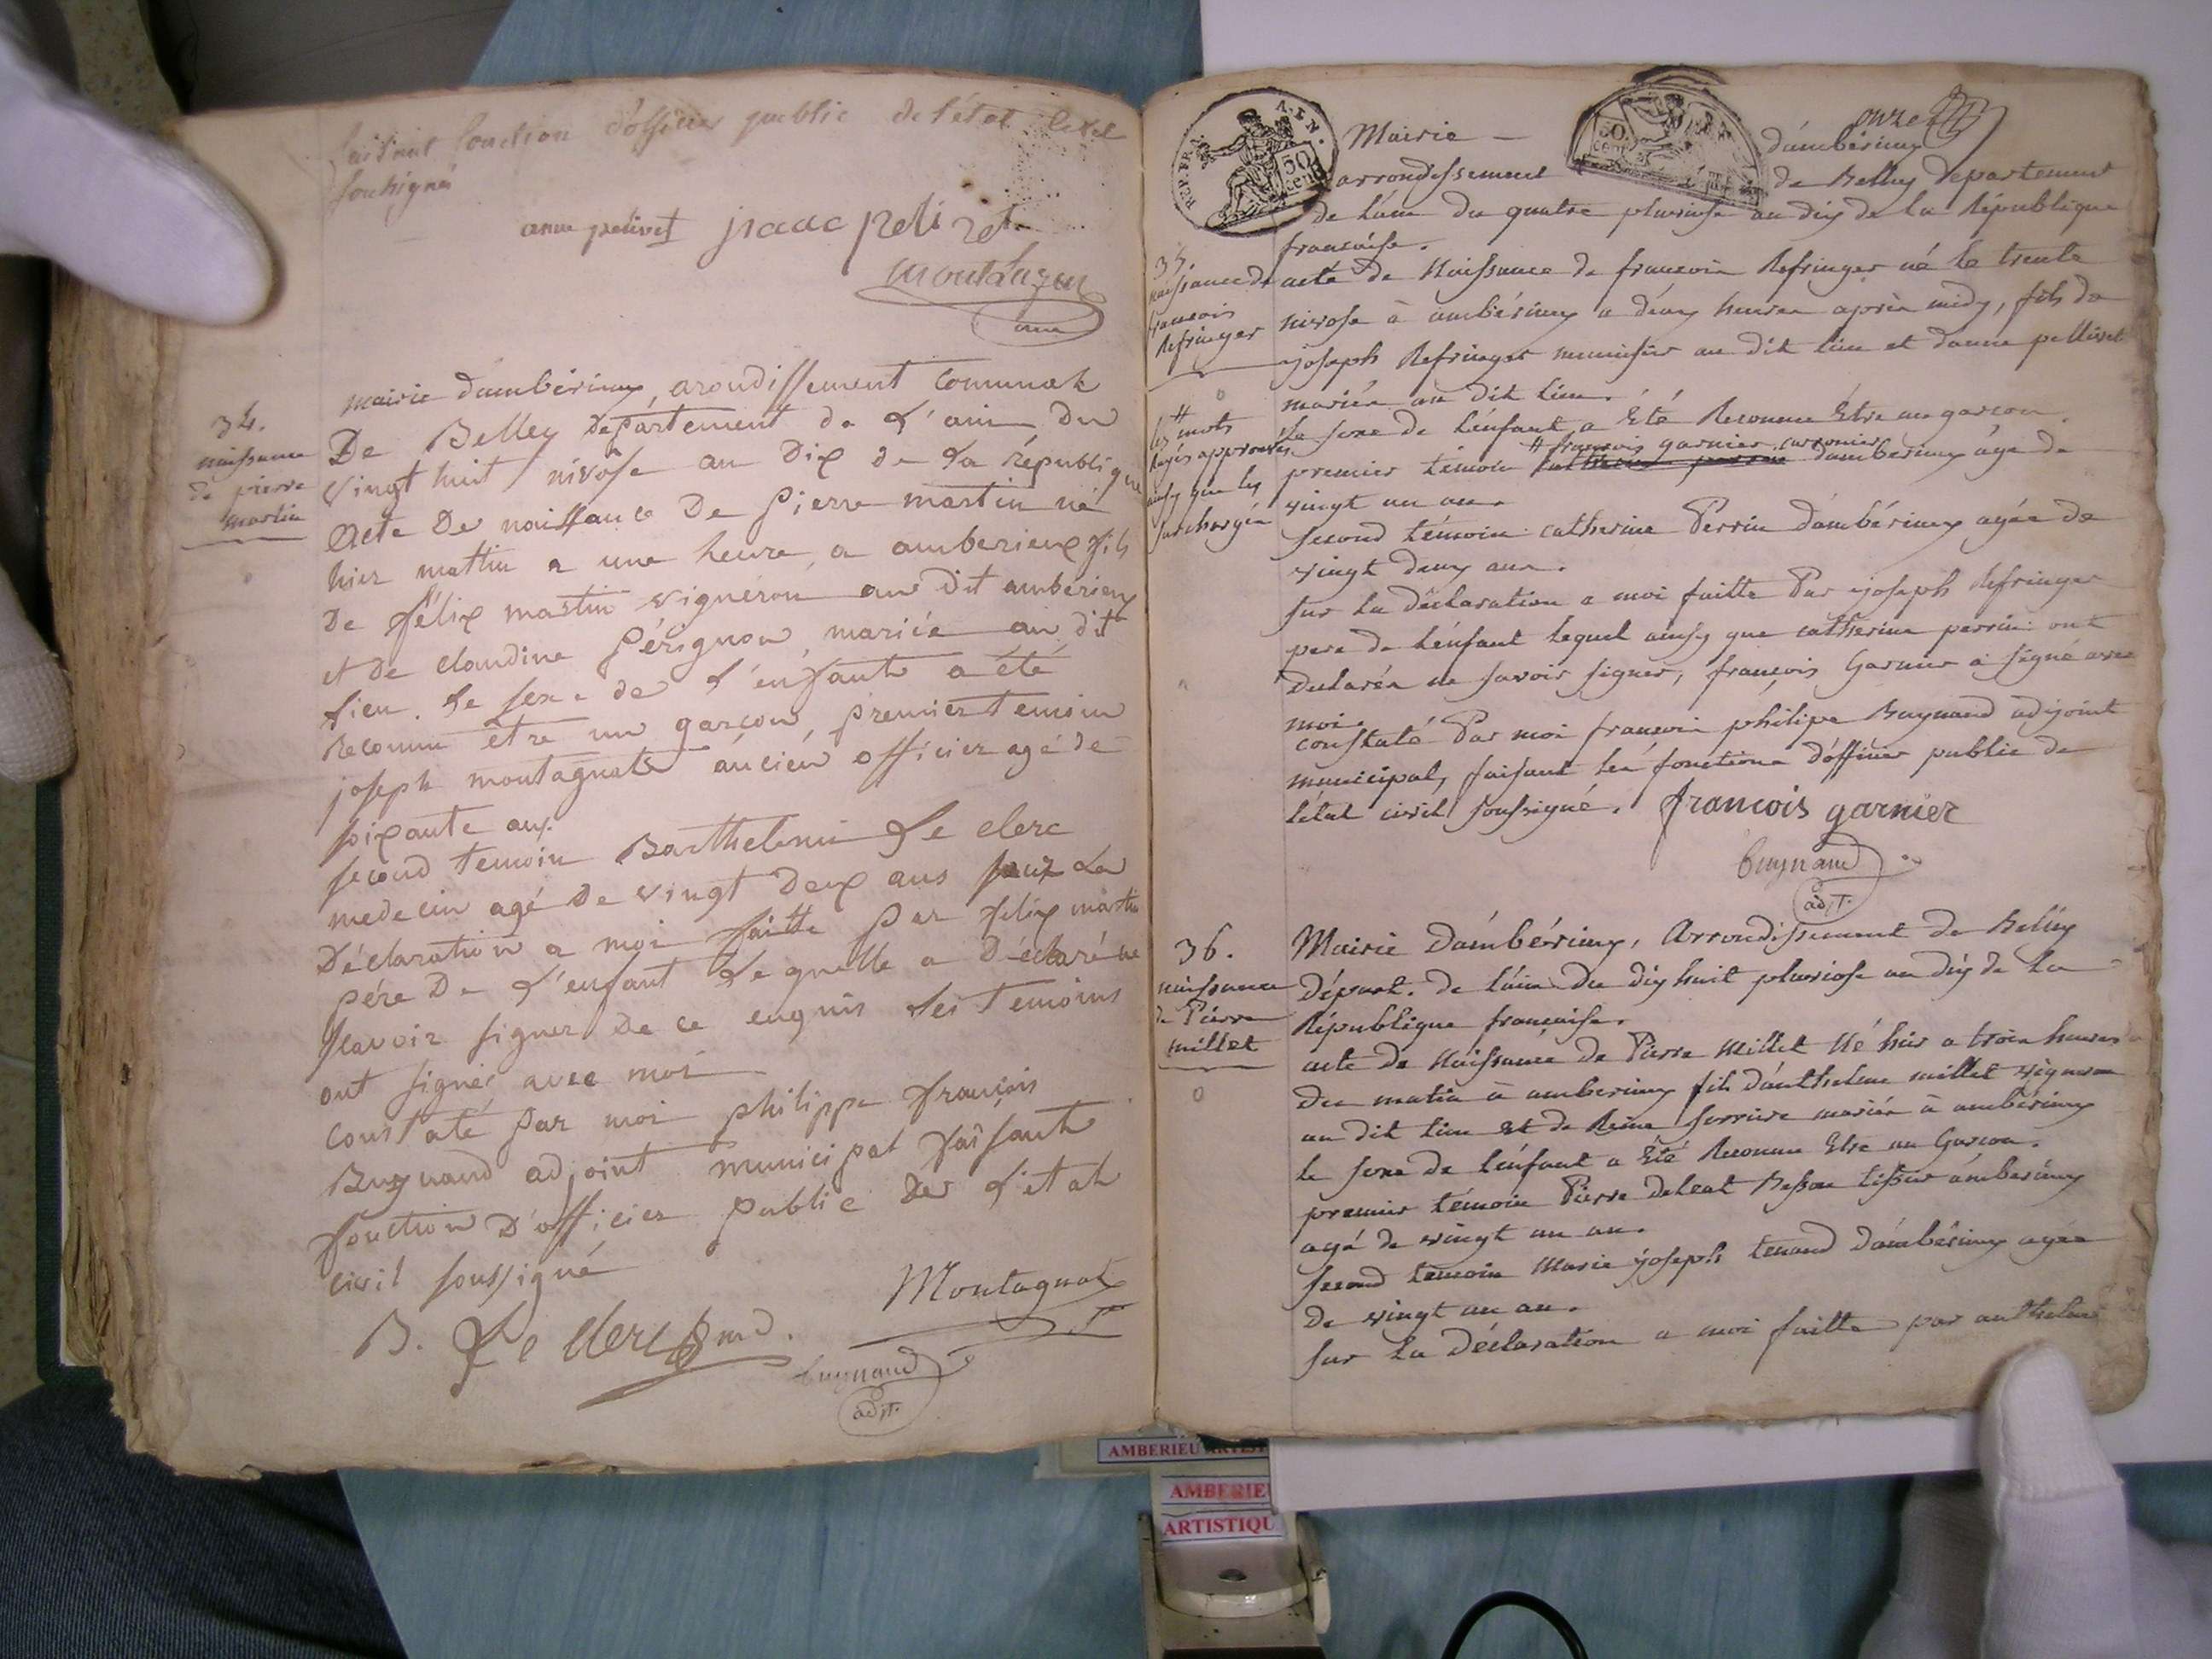 faisant fonction d'officier public de l'état civil
soussigné
anne pelivet isaac pelivet
montlazun
34.
naissance
de pierre
martin
mairie dambérieux, arondissement comunal
De Belley Département de L'ain Du
vingt huit nivôse an Dix de La République
Acte De naissance De pierre martin né
hier mattin a une heure, a amberieux fils
De félix martin vignéron au Dit amberieux
et De claudine Pérignon, mariée au dit
Lieu. Le sexe de L'enfant a été
Reconnu etre un garçon, premier temoin
joseph montagnat áncien officier agé de
soixante ans.
second temoin Barthelemi Le clerc
medecin agé De vingt Deux ans sur La
Déclaration a moi faitte par félix martin
pére De L'enfant Le quelle a Déclaré ne
scavoir signer De ce enquis Les Temoins
ont signés avec moi
constaté par moi philippe françois
Buynand adjoint municipal faisant
fonction D'officier public De L'état
civil soussigné
Montagnat
B. Le clerc md.
buynand
adjt.
onze
REP. FRA. AIN.
50 cent
50 cent
Mairie - dámberieux
arrondissement de Belley departement
de láin du quatre pluviose an dix de la République
francaise.
35.
naissance de
francois
Refringer
acte de Naissance de francois Refringer né le trente
nivose à ambérieux a deux heures après midy, fils de
joseph Refringer menuisier au dit lieu et danne pellivet
mariés au dit lieu.
# les mots
rayés approuvés
ainsy que les
surchargés
Le sexe de lénfant a Eté Reconnu Etre un garcon.
# francois garnier
premier témoin catherine perrin dámberieux agé de
vingt un ans.
second témoin catherine Perrin dámbérieux agée de
vingt deux ans.
sur la déclaration a moi faitte Par joseph Refringer
pere de lénfant lequel ainsy que catherine perrin ont
Declarés ne savoir signer, françois Garnier a signé avec
moi.
constaté Par moi francois philipe Buynand adjoint
municipal, faisant les fonctions dófficier public de
létat civil soussigné. francois garnier
buynand
adjt.
36.
naissance
de Pierre
millet
Mairie Dámbérieux, Arrondissement de Belley
Départ. de láin Du dix huit pluviose an dix de la
République francaise.
acte de Naissance de Pierre Millet Né hier a trois heures
du matin à amberieux fils dánthelme millet vigneron
au dit lieu et de Reine ferriere mariés à ambérieux
le sexe de lénfant a Eté Reconnu Etre un Garcon.
premier témoin Pierre deleat Besson tissier ámberieux
agé de vingt un ans.
second témoin Marie joseph tenand dámbérieux agée
de vingt un ans.
sur la déclaration a moi faitte par anthelme
AMBERIEU ARTIST
AMBERIE
ARTISTIQU